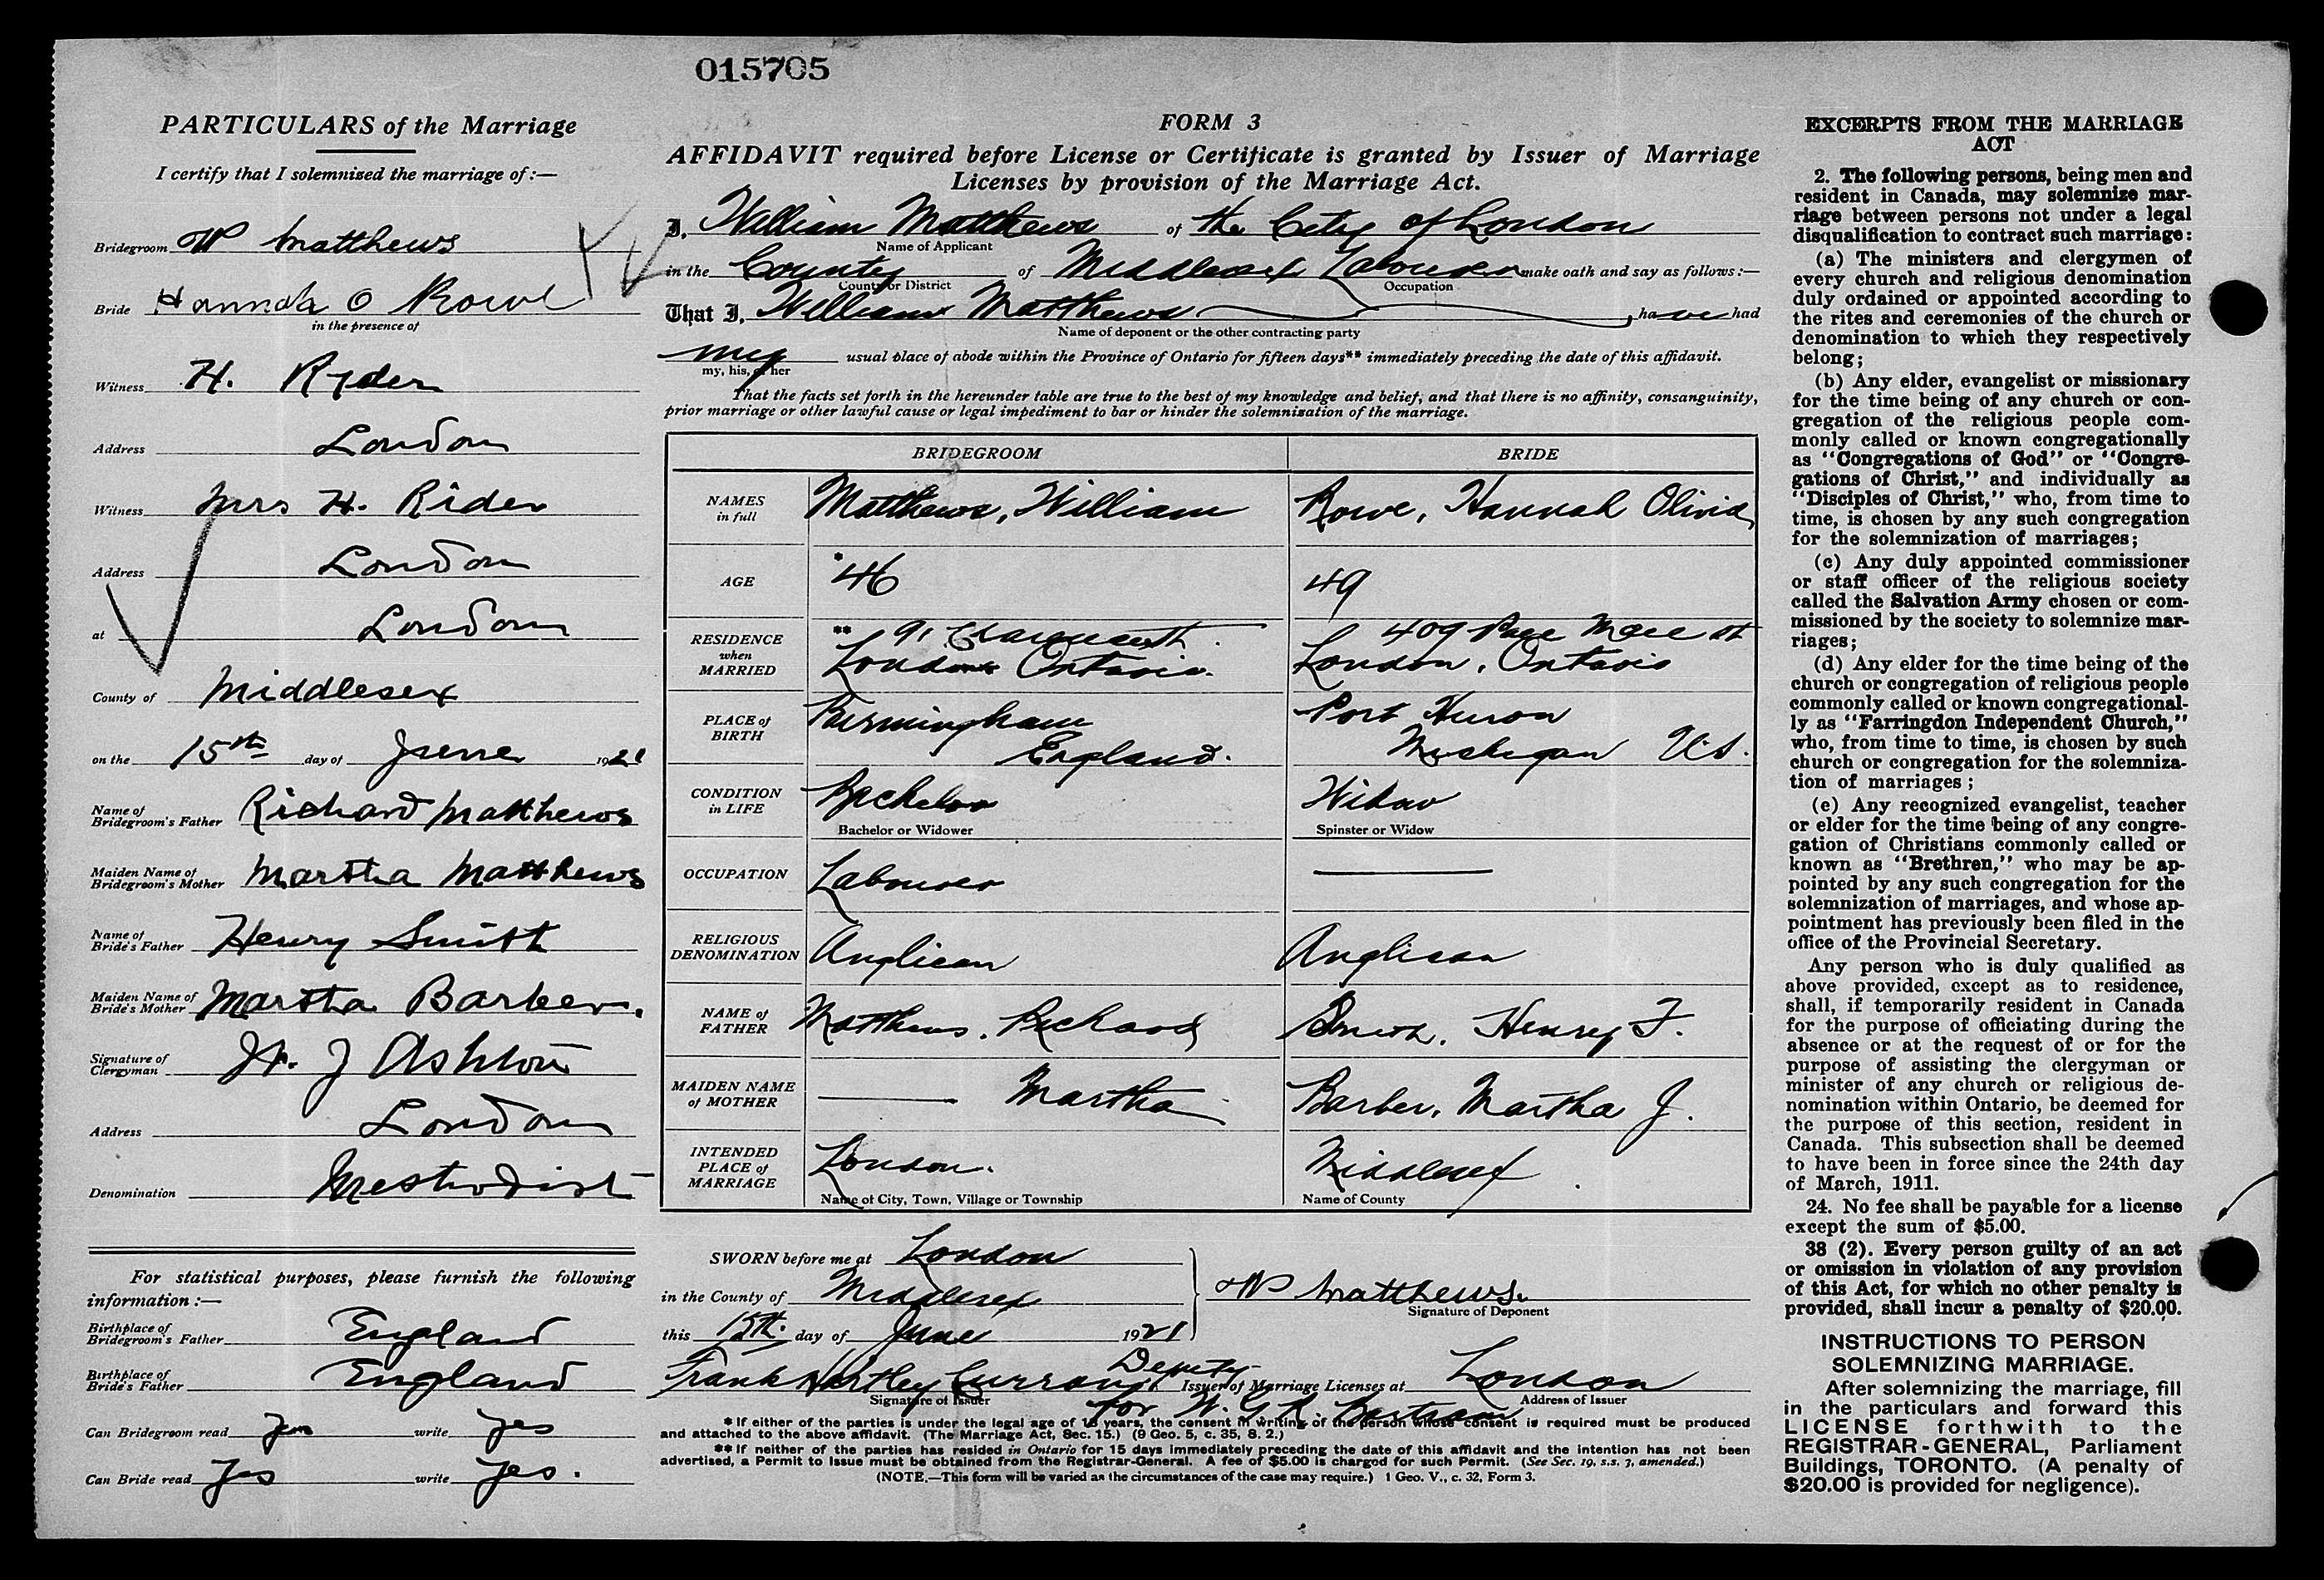 015705
PARTICULARS of the Marriage
I certify that I solemnized the marriage of:—
Bridegroom W Matthews
Bride Hannah O Rowe
in the presence of
Witness H. Ryder
Address London
Witness Mrs H. Rider
Address London
at London
County of Middlesex
on the 15th day of June 1921
Name of
Bridegroom's Father Richard Matthews
Maiden Name of
Bridegroom's Mother Martha Matthews
Name of
Bride's Father Henry Smith
Maiden Name of
Bride's Mother Martha Barber.
Signature of
Clergyman J Ashton
Address London
Denomination Methodist
For statistical purposes, please furnish the following
information:—
Birthplace of
Bridegroom's Father England
Birthplace of
Bride's Father England
Can Bridegroom read yes write yes
Can Bride read yes write yes.
FORM 3
AFFIDAVIT required before License or Certificate is granted by Issuer of Marriage
Licenses by provision of the Marriage Act.
I, William Matthews of the City of London
Name of Applicant
in the County of Middlesex Labourer make oath and say as follows:—
County or District Occupation
That I, William Matthews have had
Name of deponent or the other contracting party
my usual place of abode within the Province of Ontario for fifteen days** immediately preceding the date of this affidavit.
my, his, or her
That the facts set forth in the hereunder table are true to the best of my knowledge and belief, and that there is no affinity, consanguinity,
prior marriage or other lawful cause or legal impediment to bar or hinder the solemnization of the marriage.
BRIDEGROOM BRIDE
NAMES
in full Matthews, William Rowe, Hannah Olivia
AGE *46 49
RESIDENCE
when
MARRIED ** 91 London Ontario. 409 Pall Mall St London, Ontario
PLACE of
BIRTH Birmingham England. Port Huron Michigan U.S.
CONDITION
in LIFE Bachelor Widow
Bachelor or Widower Spinster or Widow
OCCUPATION Labourer
RELIGIOUS
DENOMINATION Anglican Anglican
NAME of
FATHER Matthews, Richard Smith, Henry F.
MAIDEN NAME
of MOTHER Martha Barber, Martha J.
INTENDED
PLACE of
MARRIAGE London. Middlesex.
Name of City, Town, Village or Township Name of County
SWORN before me at London
in the County of Middlesex W Matthews.
Signature of Deponent
this 15th. day of June 1921
Frank Hartley Curran Deputy Issuer of Marriage Licenses at London
Signature of Issuer for W. G. R. Bartram Address of Issuer
* If either of the parties is under the legal age of 18 years, the consent in writing of the person whose consent is required must be produced
and attached to the above affidavit. (The Marriage Act, Sec. 15.) (9 Geo. 5, c. 35, S. 2.)
** If neither of the parties has resided in Ontario for 15 days immediately preceding the date of this affidavit and the intention has not been
advertised, a Permit to Issue must be obtained from the Registrar-General. A fee of $5.00 is charged for such Permit. (See Sec. 19, s.s. 3, amended.)
(NOTE.—This form will be varied as the circumstances of the case may require.) 1 Geo. V., c. 32, Form 3.
EXCERPTS FROM THE MARRIAGE
ACT
2. The following persons, being men and
resident in Canada, may solemnize mar-
riage between persons not under a legal
disqualification to contract such marriage:
(a) The ministers and clergymen of
every church and religious denomination
duly ordained or appointed according to
the rites and ceremonies of the church or
denomination to which they respectively
belong;
(b) Any elder, evangelist or missionary
for the time being of any church or con-
gregation of the religious people com-
monly called or known congregationally
as "Congregations of God" or "Congre-
gations of Christ," and individually as
"Disciples of Christ," who, from time to
time, is chosen by any such congregation
for the solemnization of marriages;
(c) Any duly appointed commissioner
or staff officer of the religious society
called the Salvation Army chosen or com-
missioned by the society to solemnize mar-
riages;
(d) Any elder for the time being of the
church or congregation of religious people
commonly called or known congregational-
ly as "Farringdon Independent Church,"
who, from time to time, is chosen by such
church or congregation for the solemniza-
tion of marriages;
(e) Any recognized evangelist, teacher
or elder for the time being of any congre-
gation of Christians commonly called or
known as "Brethren," who may be ap-
pointed by any such congregation for the
solemnization of marriages, and whose ap-
pointment has previously been filed in the
office of the Provincial Secretary.
Any person who is duly qualified as
above provided, except as to residence,
shall, if temporarily resident in Canada
for the purpose of officiating during the
absence or at the request of or for the
purpose of assisting the clergyman or
minister of any church or religious de-
nomination within Ontario, be deemed for
the purpose of this section, resident in
Canada. This subsection shall be deemed
to have been in force since the 24th day
of March, 1911.
24. No fee shall be payable for a license
except the sum of $5.00.
38 (2). Every person guilty of an act
or omission in violation of any provision
of this Act, for which no other penalty is
provided, shall incur a penalty of $20.00.
INSTRUCTIONS TO PERSON
SOLEMNIZING MARRIAGE.
After solemnizing the marriage, fill
in the particulars and forward this
LICENSE forthwith to the
REGISTRAR-GENERAL, Parliament
Buildings, TORONTO. (A penalty of
$20.00 is provided for negligence).